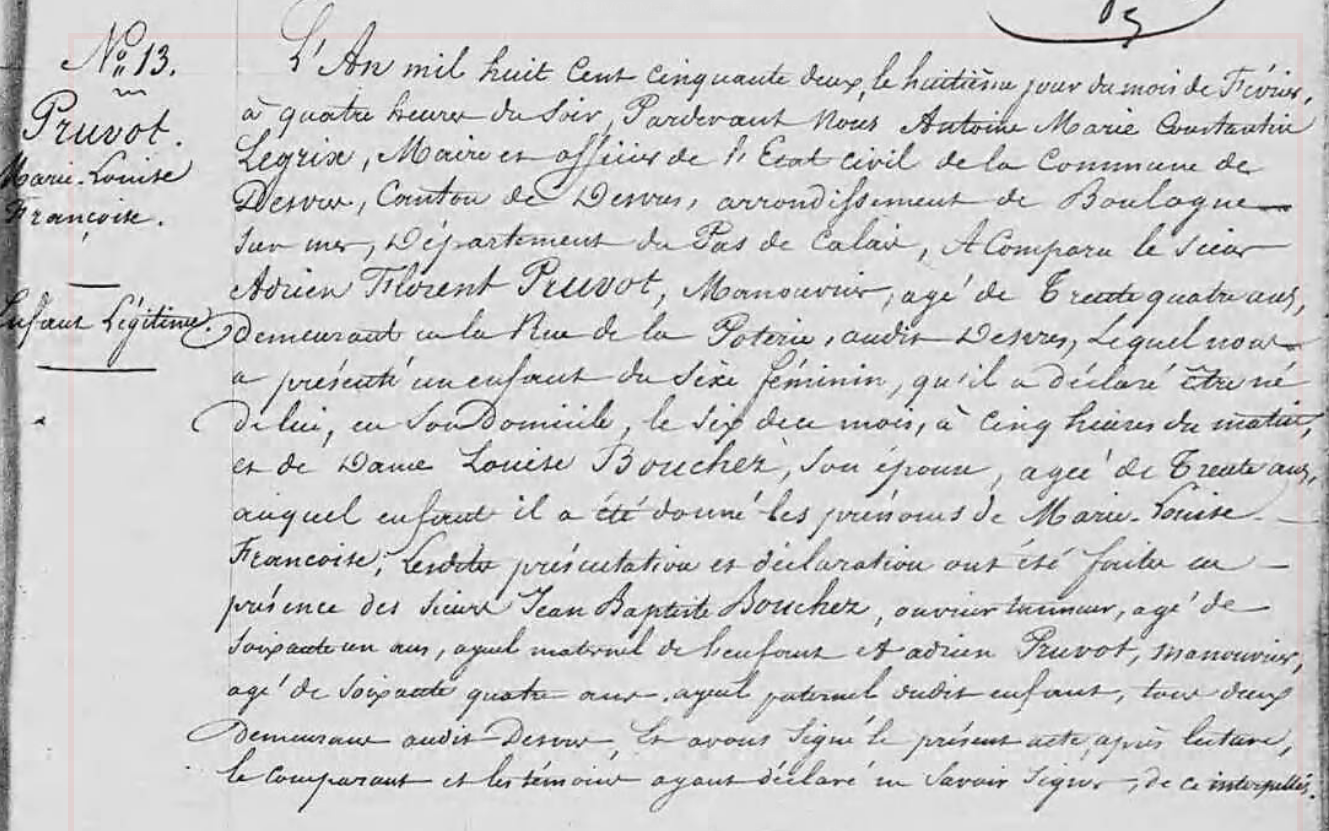 N.º 13.
Pruvot.
Marie-Louise
Françoise.
Enfant Légitime.
L'An mil huit Cent cinquante deux, le huitième jour du mois de Février,
à quatre heures du Soir, Pardevant Nous Antoine Marie Constantin
Legrix, Maire et officier de l'Etat civil de la Commune de
Desvres, Canton de Desvres, arrondissement de Boulogne
Sur mer, Département du Pas de Calais, A Comparu le Sieur
Adrien Florent Pruvot, Manouvrier, agé de Trente quatre ans,
demeurant en la Rue de la Poterie, audit Desvres, Lequel nous
a présenté un enfant du Sexe féminin, qu'il a déclaré être né
de lui, en Son Domicile, le Six de ce mois, à Cinq heures du matin,
et de Dame Louise Bouchez, Son épouse, agée de Trente ans,
auquel enfant il a été donné les prénoms de Marie-Louise
Françoise; Lesdites présentation et déclaration ont été faites en
présence des Sieurs Jean Baptiste Bouchez, ouvrier tanneur, agé de
Soixante un ans, ayeul maternel de l'enfant et adrien Pruvot, manouvrier,
agé de Soixante quatre ans, ayeul paternel dudit enfant, tous deux
Demeurant audit Desvres, Et avons Signé le présent acte, après lecture,
le Comparant et les témoins ayant déclaré ne Savoir Signer, de ce interpellés.